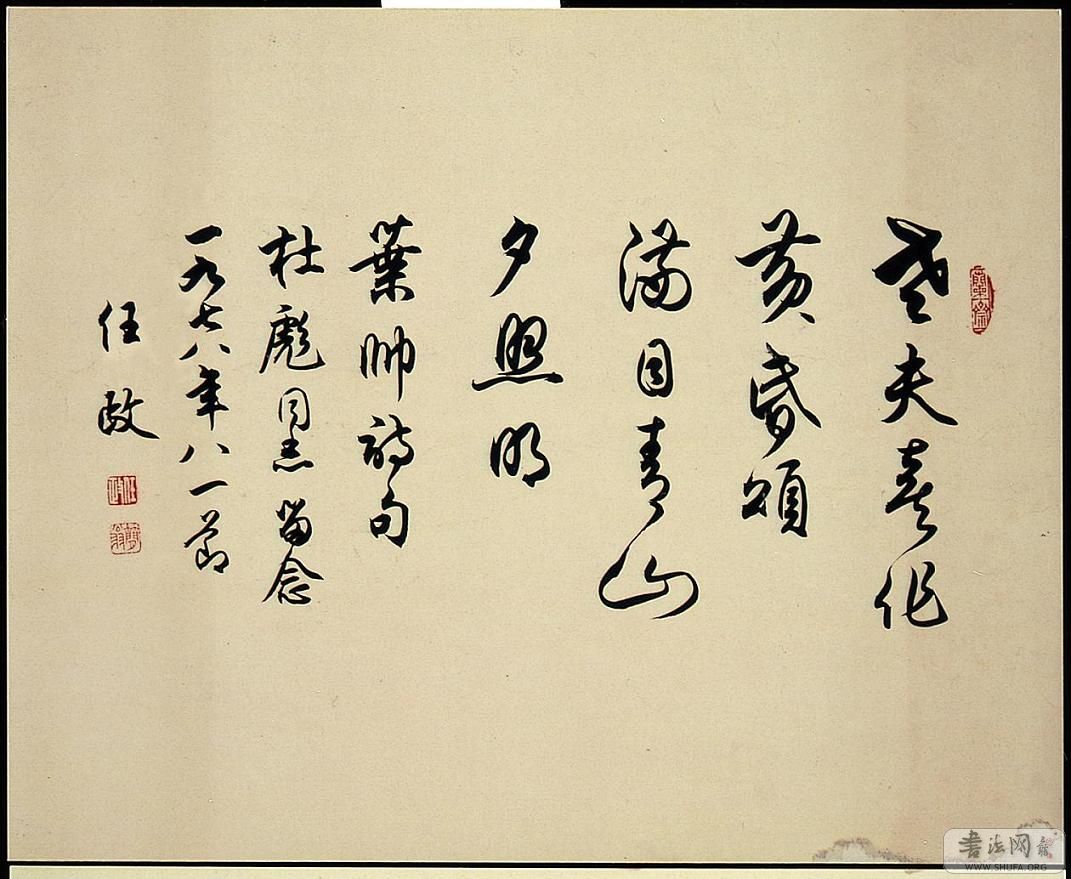 老夫喜作
黄昏頌
满目青山
夕照明
葉帅詩句
杜彪同志留念
一九七八年八一節
任政
任政
書法网
WWW.SHUFA.ORG